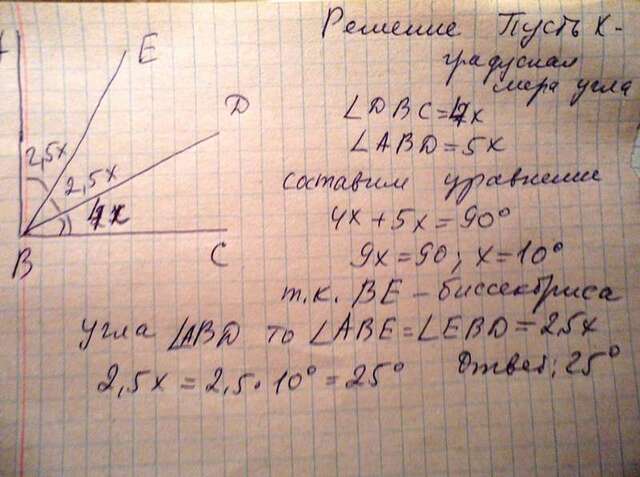 E
D
2,5x
2,5x
4x
B
C
Решение Пусть x-
градусная
мера угла
∠DBC=4x
∠ABD=5x
составим уравнение
4x+5x=90°
9x=90; x=10°
т.к. BE - биссектриса
угла ∠ABD то ∠ABE=∠EBD=2,5x
2,5x=2,5·10°=25°
Ответ; 25°